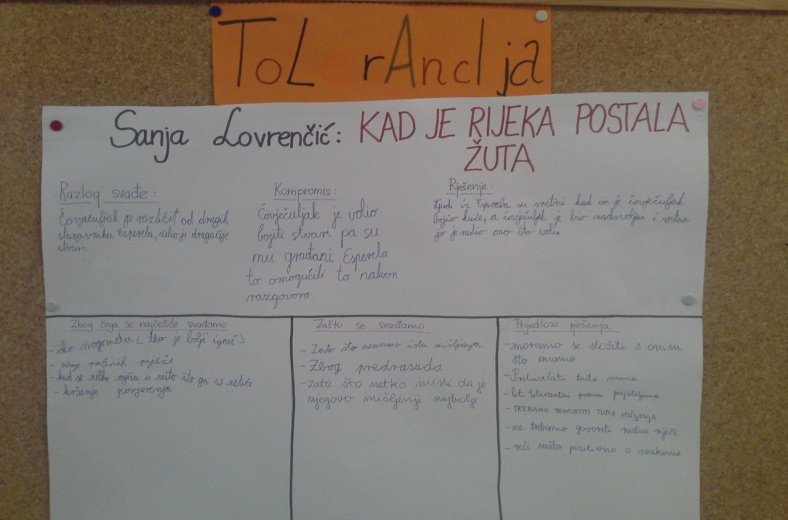 ToLerAncIja
Sanja Lovrenčić: KAD JE RIJEKA POSTALA
ŽUTA
Razlog svađe:
Čovječuljak je različit od drugih
stanovnika Esperela, vidio je drugačije
stvari.
Kompromis:
Čovječuljak je volio
bojiti stvari pa su
mu građani Esperela
to omogućili to nakon
razgovora.
Rješenje:
Ljudi iz Esperela su sretni kad im je čovječuljak
bojio kuće, a čovječuljak je bio zadovoljan i sretan
jer je radio ono što voli.
Zbog čega se najčešće svađamo
- oko nogometa (tko je bolji igrač)
- zbog ružnih riječi
- kad se netko u nešto što ga se ne tiče
- kršenje povjerenja
Zašto se svađamo
- Zato što nemamo ista mišljenja
- Zbog predrasuda
- Zato što netko misli da je
njegovo mišljenje najbolje
Prijedlozi rješenja
- moramo se složiti s onim
što imamo
- Prihvaćati tuđe mane
- bit tolerantan prema prijateljima
- TREBAMO TUĐA MIŠLJENJA
- ne trebamo govoriti ružne riječi
- reći nešto pozitivno o svakome